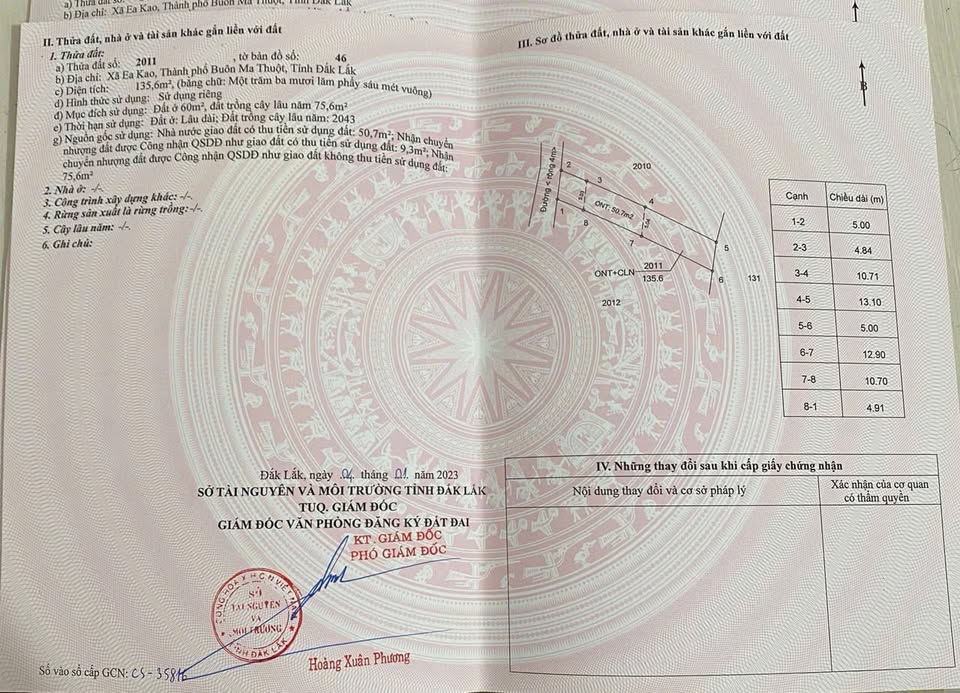 a) Thửa đất số:
b) Địa chỉ: Xã Ea Kao, Thành phố Buôn Ma Thuột, Tỉnh Đắk Lắk
II. Thửa đất, nhà ở và tài sản khác gắn liền với đất
1. Thửa đất:
a) Thửa đất số: 2011 , tờ bản đồ số: 46
b) Địa chỉ: Xã Ea Kao, Thành phố Buôn Ma Thuột, Tỉnh Đắk Lắk
c) Diện tích: 135,6m², (bằng chữ: Một trăm ba mươi lăm phẩy sáu mét vuông)
d) Hình thức sử dụng: Sử dụng riêng
đ) Mục đích sử dụng: Đất ở 60m², đất trồng cây lâu năm 75,6m²
e) Thời hạn sử dụng: Đất ở: Lâu dài; Đất trồng cây lâu năm: 2043
g) Nguồn gốc sử dụng: Nhà nước giao đất có thu tiền sử dụng đất: 50,7m²; Nhận chuyển
nhượng đất được Công nhận QSDĐ như giao đất có thu tiền sử dụng đất: 9,3m²; Nhận
chuyển nhượng đất được Công nhận QSDĐ như giao đất không thu tiền sử dụng đất:
75,6m²
2. Nhà ở: -/-.
3. Công trình xây dựng khác: -/-.
4. Rừng sản xuất là rừng trồng: -/-.
5. Cây lâu năm: -/-.
6. Ghi chú:
Đắk Lắk, ngày 04 tháng 01 năm 2023
SỞ TÀI NGUYÊN VÀ MÔI TRƯỜNG TỈNH ĐẮK LẮK
TUQ. GIÁM ĐỐC
GIÁM ĐỐC VĂN PHÒNG ĐĂNG KÝ ĐẤT ĐAI
KT. GIÁM ĐỐC
PHÓ GIÁM ĐỐC
CỘNG HÒA X.H.C.N VIỆT NAM
SỞ
TÀI NGUYÊN
VÀ
MÔI TRƯỜNG
TỈNH ĐẮK LẮK
Hoàng Xuân Phương
Số vào sổ cấp GCN: CS-35816
III. Sơ đồ thửa đất, nhà ở và tài sản khác gắn liền với đất
B
Đường < rộng 4m>
2
3
2010
4
ONT: 50.7m2
1
8
7
5
6
ONT+CLN 2011
135.6
131
2012
Cạnh Chiều dài (m)
1-2 5.00
2-3 4.84
3-4 10.71
4-5 13.10
5-6 5.00
6-7 12.90
7-8 10.70
8-1 4.91
IV. Những thay đổi sau khi cấp giấy chứng nhận
Nội dung thay đổi và cơ sở pháp lý
Xác nhận của cơ quan
có thẩm quyền